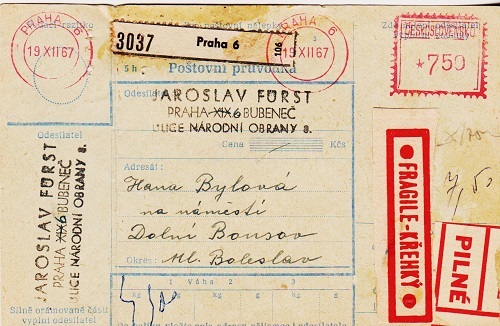 PRAHA 6
19 XII 67
3037 Praha 6 106
PRAHA 6
19 XII 67
ČESKOSLOVENSKO
*750
5 h
Poštovní průvodka
Odesílatel
JAROSLAV FÜRST
PRAHA XIX 6 BUBENEČ
ULICE NÁRODNÍ OBRANY 8.
Cena Kčs
Adresát:
Hana Bylová
na náměstí
Dolní Bousov
Okres: Ml. Boleslav
Odesílatel
JAROSLAV FÜRST
PRAHA XIX 6 BUBENEČ
ULICE NÁRODNÍ OBRANY 8.
Silně orámované části
vyplní odesílatel
1 Váha 2 3
kg kg kg
7,50
FRAGILE-KŘEHKÝ
PILNÉ